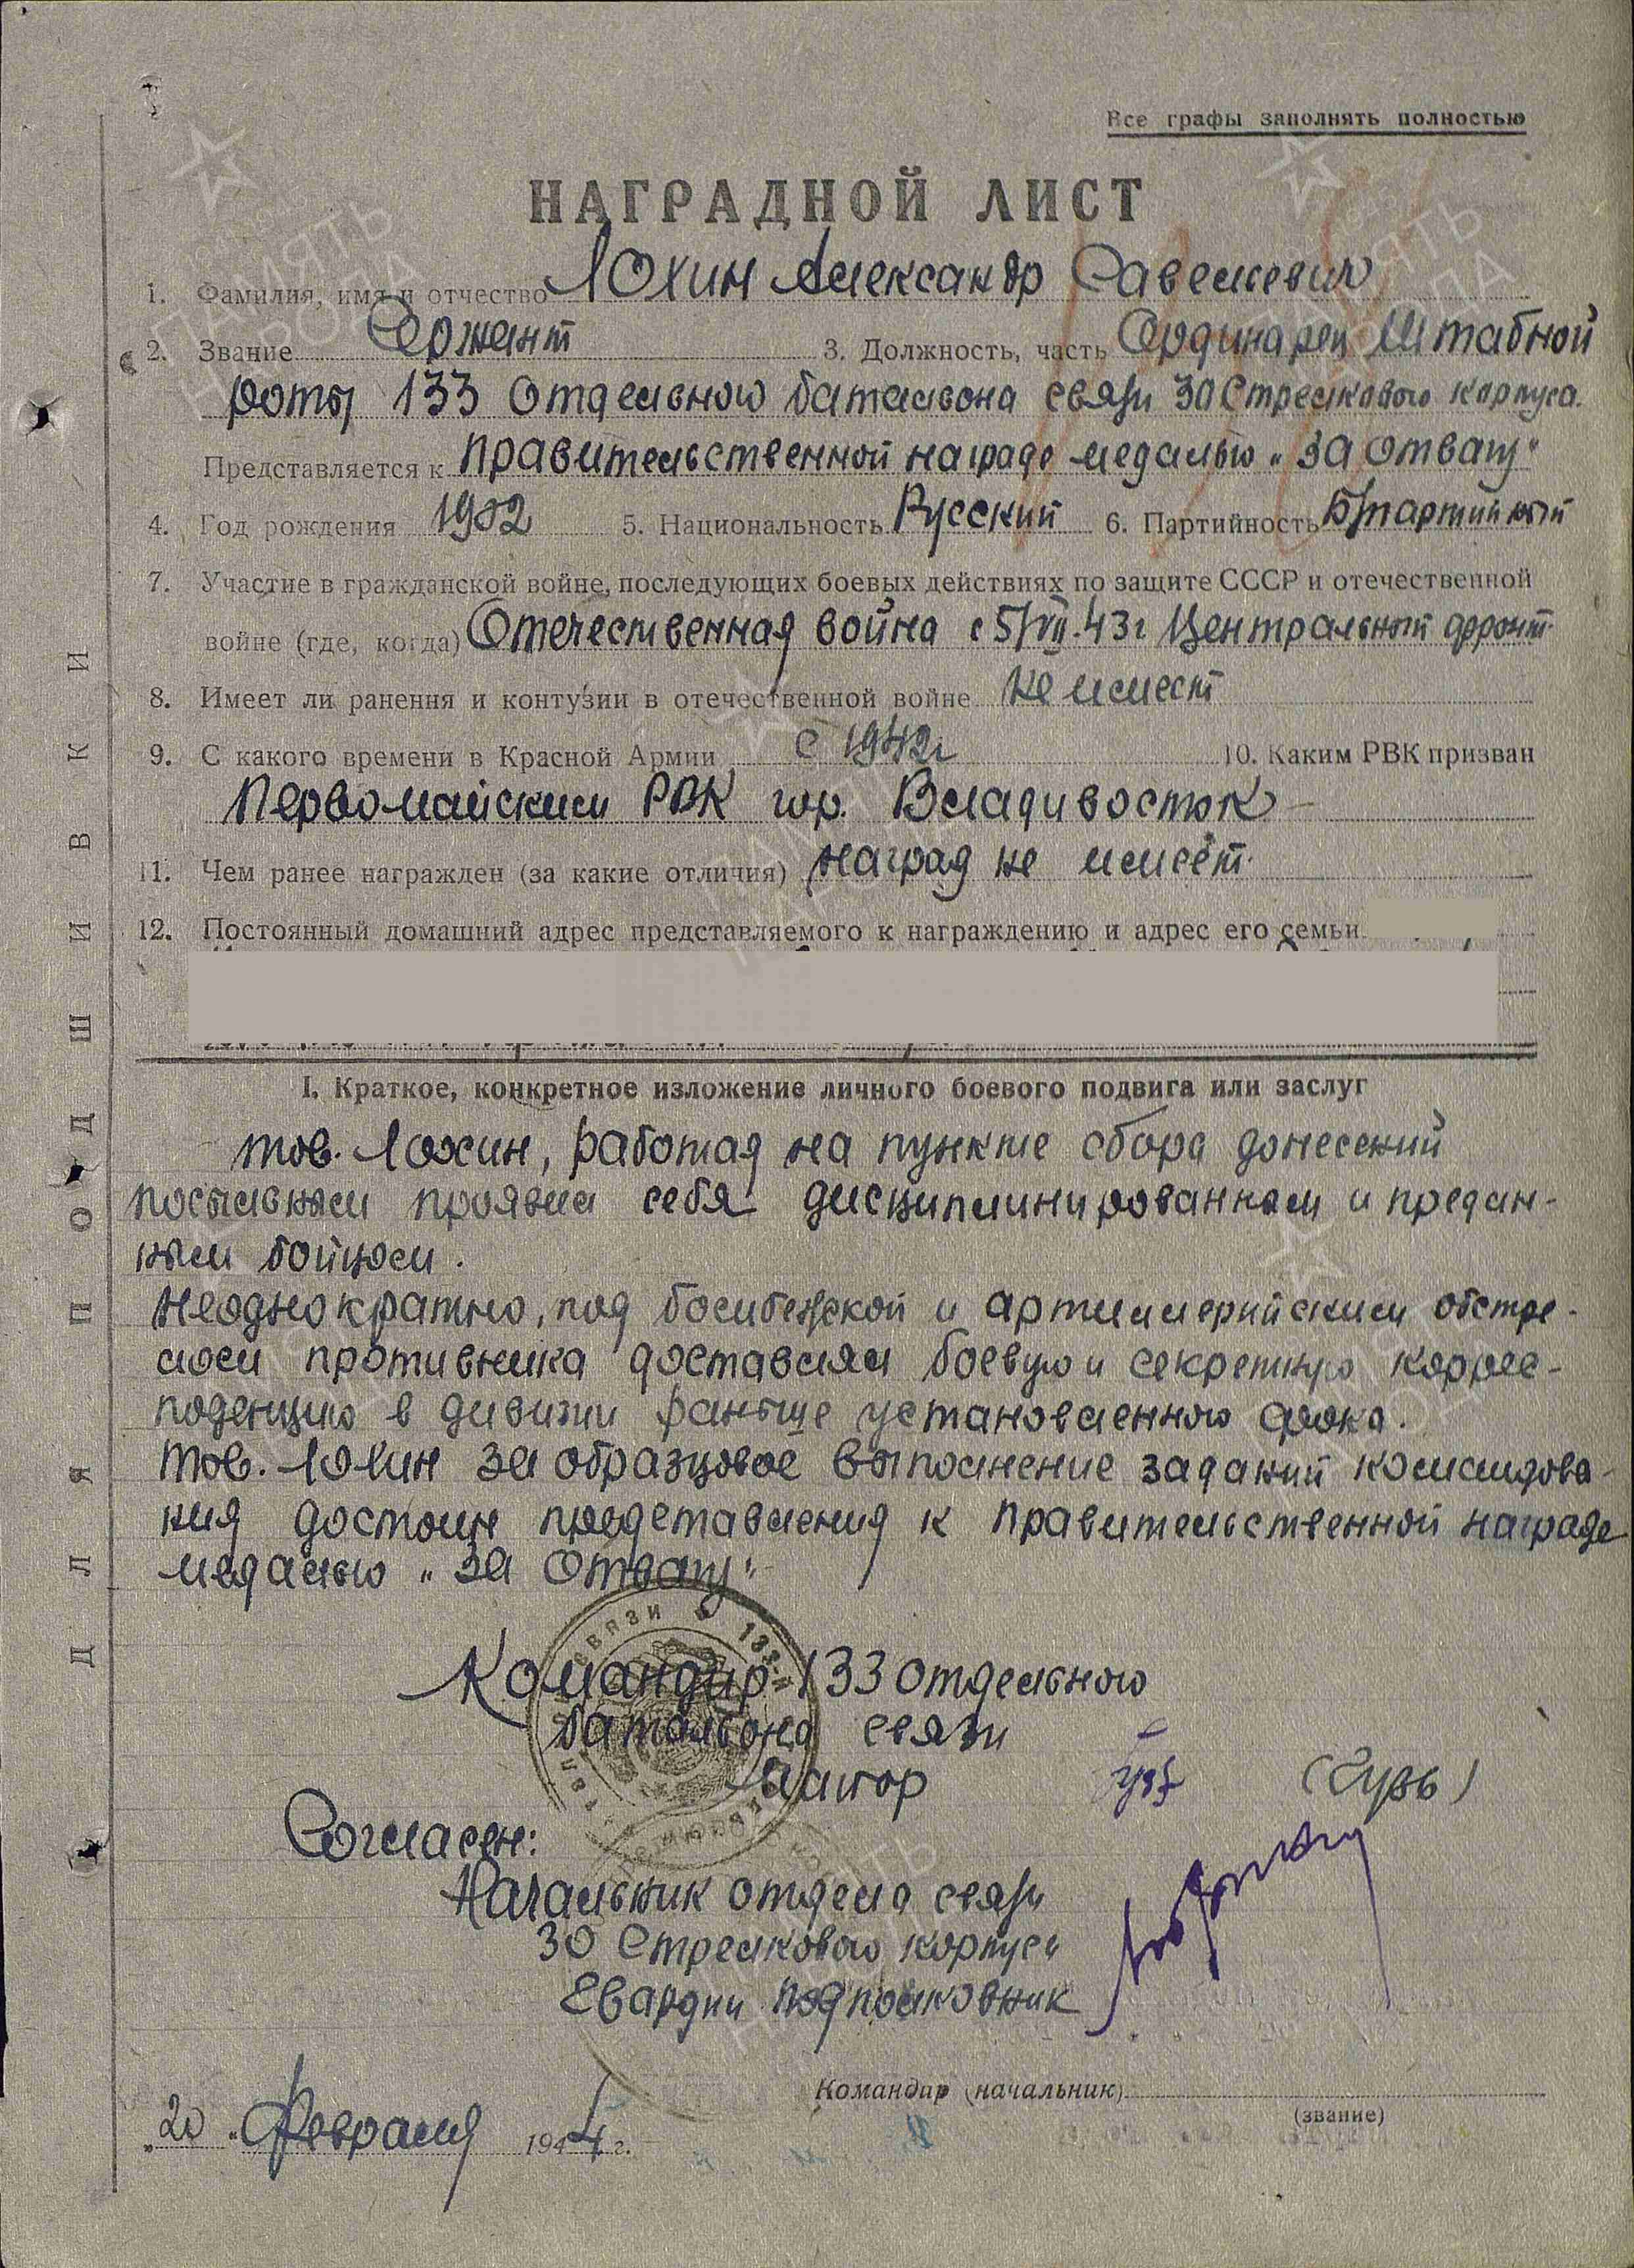 Все графы заполнять полностью
НАГРАДНОЙ ЛИСТ
1. Фамилия, имя и отчество Юхин Александр Савельевич
2. Звание Сержант 3. Должность, часть Ординарец Штабной
роты 133 отдельного батальона связи 30 Стрелкового корпуса.
Представляется к правительственной награде медалью „За отвагу“
4. Год рождения 1902 5. Национальность Русский 6. Партийность Б/партийный
7. Участие в гражданской войне, последующих боевых действиях по защите СССР и отечественной
войне (где, когда) Отечественная война с 5/VII.43г Центральный фронт.
8. Имеет ли ранения и контузии в отечественной войне не имеет
9. С какого времени в Красной Армии с 1942г 10. Каким РВК призван
Первомайским РВК гор. Владивосток
11. Чем ранее награжден (за какие отличия) наград не имеет.
12. Постоянный домашний адрес представляемого к награждению и адрес его семьи
I. Краткое, конкретное изложение личного боевого подвига или заслуг
тов. Юхин, работая на пункте сбора донесений
посыльным проявил себя дисциплинированным и предан-
ным бойцом.
Неоднократно, под бомбежкой и артиллерийским обстре-
лом противника доставлял боевую и секретную коррес-
поденцию в дивизии раньше установленного срока.
Тов. Юхин за образцовое выполнение заданий командова-
ния достоин представления к правительственной награде
медалью „За Отвагу“
Командир 133 отдельного
батальона связи
Майор (Гузь)
Согласен:
Начальник отдела связи
30 Стрелкового корпуса
Гвардии подполковник
Командир (начальник)
(звание)
„20“ февраля 1944 г.
ДЛЯ ПОДШИВКИ
ПАМЯТЬ НАРОДА